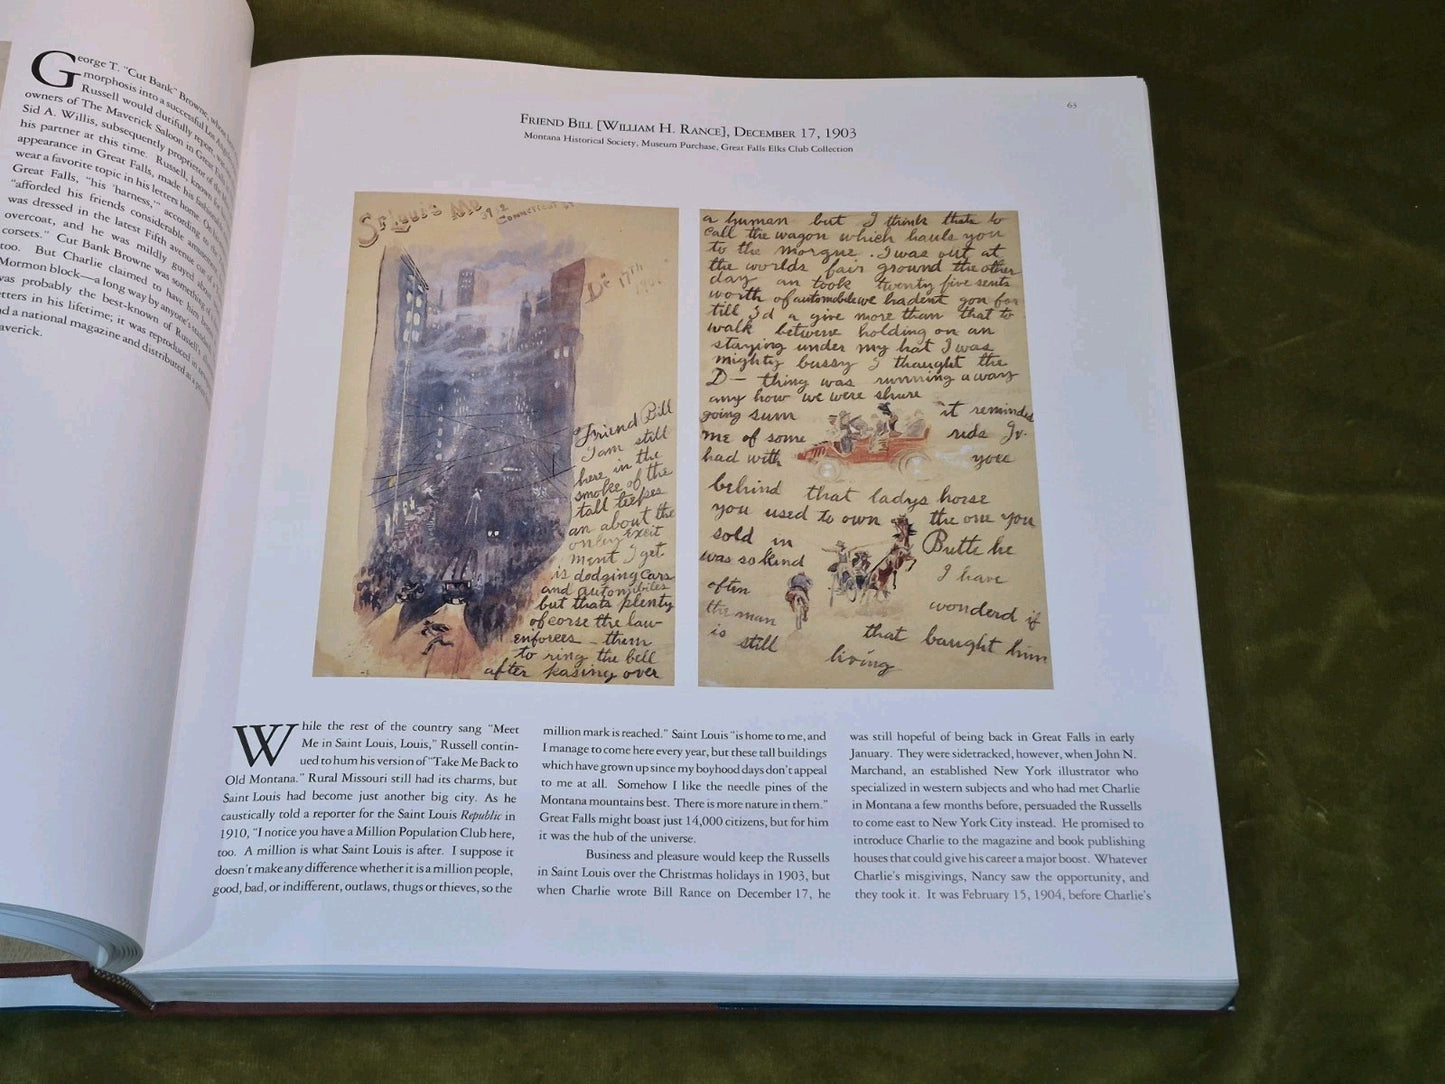 George T. "Cut Bank" Browne, whose
morphosis into a successful Los
Russell would dutifully report, was
owners of The Maverick Saloon in Great Falls
Sid A. Willis, subsequently proprietor of the
his partner at this time. Russell, known for
appearance in Great Falls, made his fashionable
wear a favorite topic in his letters home. On
Great Falls, "his 'harness,'" according to the
"afforded his friends considerable amusement
was dressed in the latest Fifth avenue cut of
overcoat, and he was mildly guyed about
corsets." Cut Bank Browne was something of
too. But Charlie claimed to have him
Mormon block—a long way by anyone's
was probably the best-known of Russell's
letters in his lifetime; it was reproduced in
a national magazine and distributed as a
averick.
63
Friend Bill [William H. Rance], December 17, 1903
Montana Historical Society, Museum Purchase, Great Falls Elks Club Collection
St Louis Mo
De 17th
Friend Bill
I am still
here in the
smoke of the
tall teepes
an about the
onley exeit
ment I get
is dodging cars
and automibites
but thats plenty
of corse the law
enforces them
to ring the bell
after pasing over
a human but I think thats to
call the wagon which hauls you
to the morgue. I was out at
the worlds fair ground the other
day an took twenty five sents
worth of automobile we hadent gon far
till I'd a give more than that to
walk betwene holding on an
staying under my hat I was
mighty bussy I thaught the
D— thing was running away
any how we were shure
going sum it reminds
me of some rids Iv.
had with you
behind that ladys horse
you used to own the one you
sold in Butte he
was so kind I have
often wonderd if
the man that baught him
is still living
While the rest of the country sang "Meet
Me in Saint Louis, Louis," Russell contin-
ued to hum his version of "Take Me Back to
Old Montana." Rural Missouri still had its charms, but
Saint Louis had become just another big city. As he
caustically told a reporter for the Saint Louis Republic in
1910, "I notice you have a Million Population Club here,
too. A million is what Saint Louis is after. I suppose it
doesn't make any difference whether it is a million people,
good, bad, or indifferent, outlaws, thugs or thieves, so the
million mark is reached." Saint Louis "is home to me, and
I manage to come here every year, but these tall buildings
which have grown up since my boyhood days don't appeal
to me at all. Somehow I like the needle pines of the
Montana mountains best. There is more nature in them."
Great Falls might boast just 14,000 citizens, but for him
it was the hub of the universe.
Business and pleasure would keep the Russells
in Saint Louis over the Christmas holidays in 1903, but
when Charlie wrote Bill Rance on December 17, he
was still hopeful of being back in Great Falls in early
January. They were sidetracked, however, when John N.
Marchand, an established New York illustrator who
specialized in western subjects and who had met Charlie
in Montana a few months before, persuaded the Russells
to come east to New York City instead. He promised to
introduce Charlie to the magazine and book publishing
houses that could give his career a major boost. Whatever
Charlie's misgivings, Nancy saw the opportunity, and
they took it. It was February 15, 1904, before Charlie's